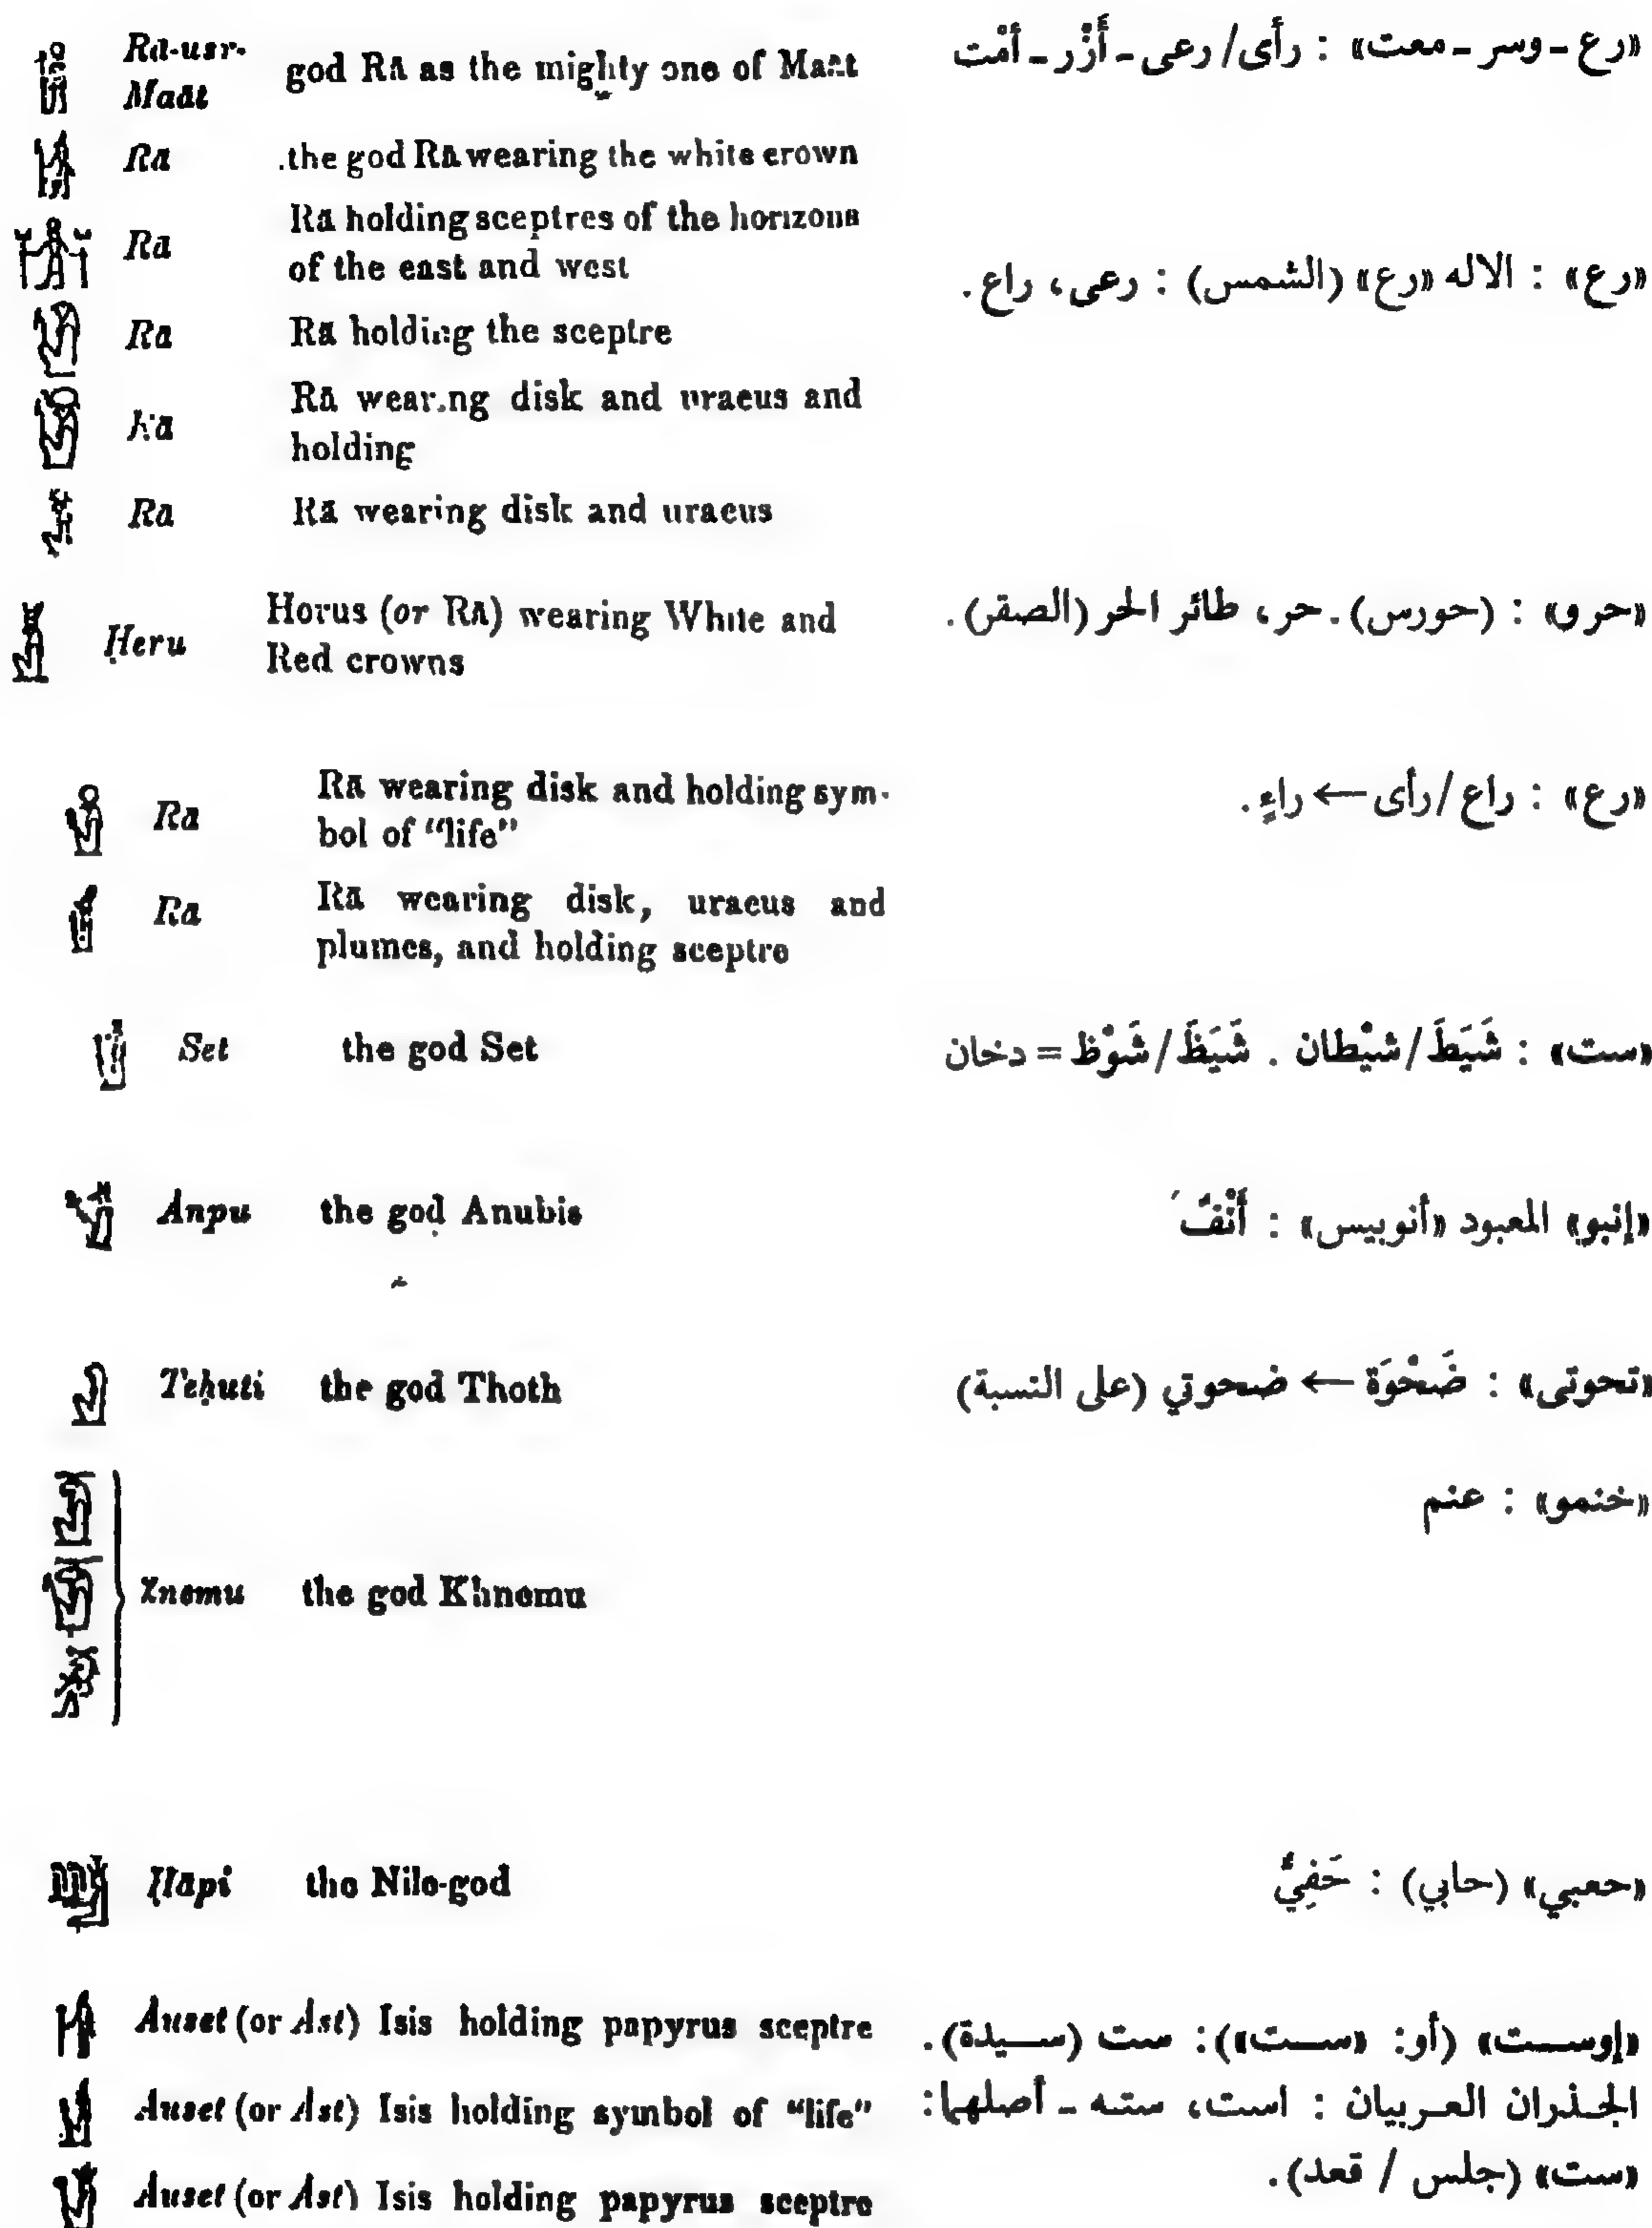 Rā-usr- god Rā as the mighty one of Maāt «رع - وسر - معت» : رأى / رعى - أَزْر - أمْت
Maāt
Rā .the god Rā wearing the white crown
Rā Rā holding sceptres of the horizons
of the east and west
«رع» : الاله «رع» (الشمس) : رعى، راع .
Rā Rā holding the sceptre
Rā Rā wearing disk and uraeus and
holding
Rā Rā wearing disk and uraeus
Ḥeru Horus (or Rā) wearing White and
Red crowns
«حرو» : (حورس) . حر، طائر الحر (الصقر) .
Rā Rā wearing disk and holding sym-
bol of "life"
«رع» : راع / رأى ← راءٍ .
Rā Rā wearing disk, uraeus and
plumes, and holding sceptre
Set the god Set «ست» : شَيَطَ / شيْطان . شَيَظَ / شَوْظ = دخان
Ȧnpu the god Anubis «إنبو» المعبود «أنوبيس» : أَنْفٌ
Teḥuti the god Thoth «تحوتى» : ضَحْوَة ← ضحوتي (على النسبة)
«خنمو» : عنم
Χnemu the god Khnemu
Ḥāpi the Nile-god «حعبي» (حابي) : حَفِيٌّ
Ȧuset (or Ȧst) Isis holding papyrus sceptre «إوست» (أو: «ست»): ست (سيدة) .
Ȧuset (or Ȧst) Isis holding symbol of "life" الجذران العربيان : است، سته - أصلهما:
Ȧuset (or Ȧst) Isis holding papyrus sceptre «ست» (جلس / قعد) .